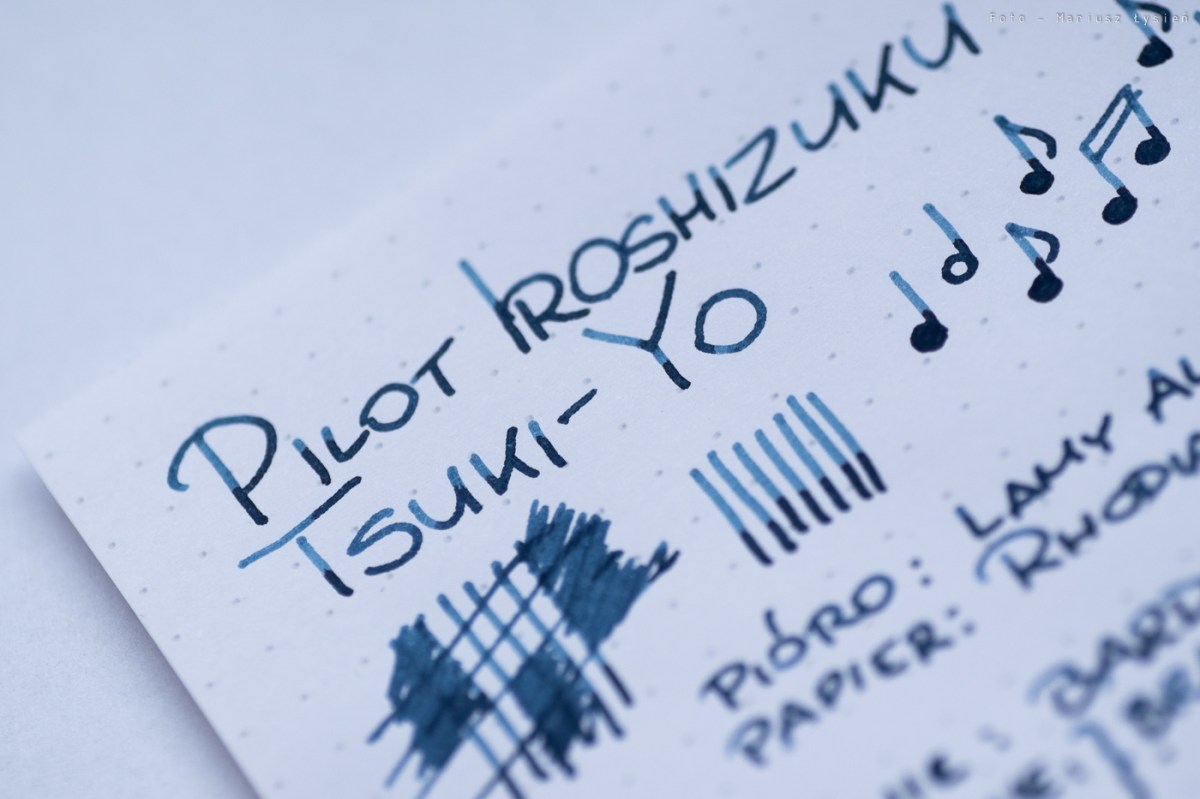 Foto - Mariusz Łysień
PILOT IROSHIZUKU
TSUKI-YO
PIÓRO: LAMY
PAPIER: